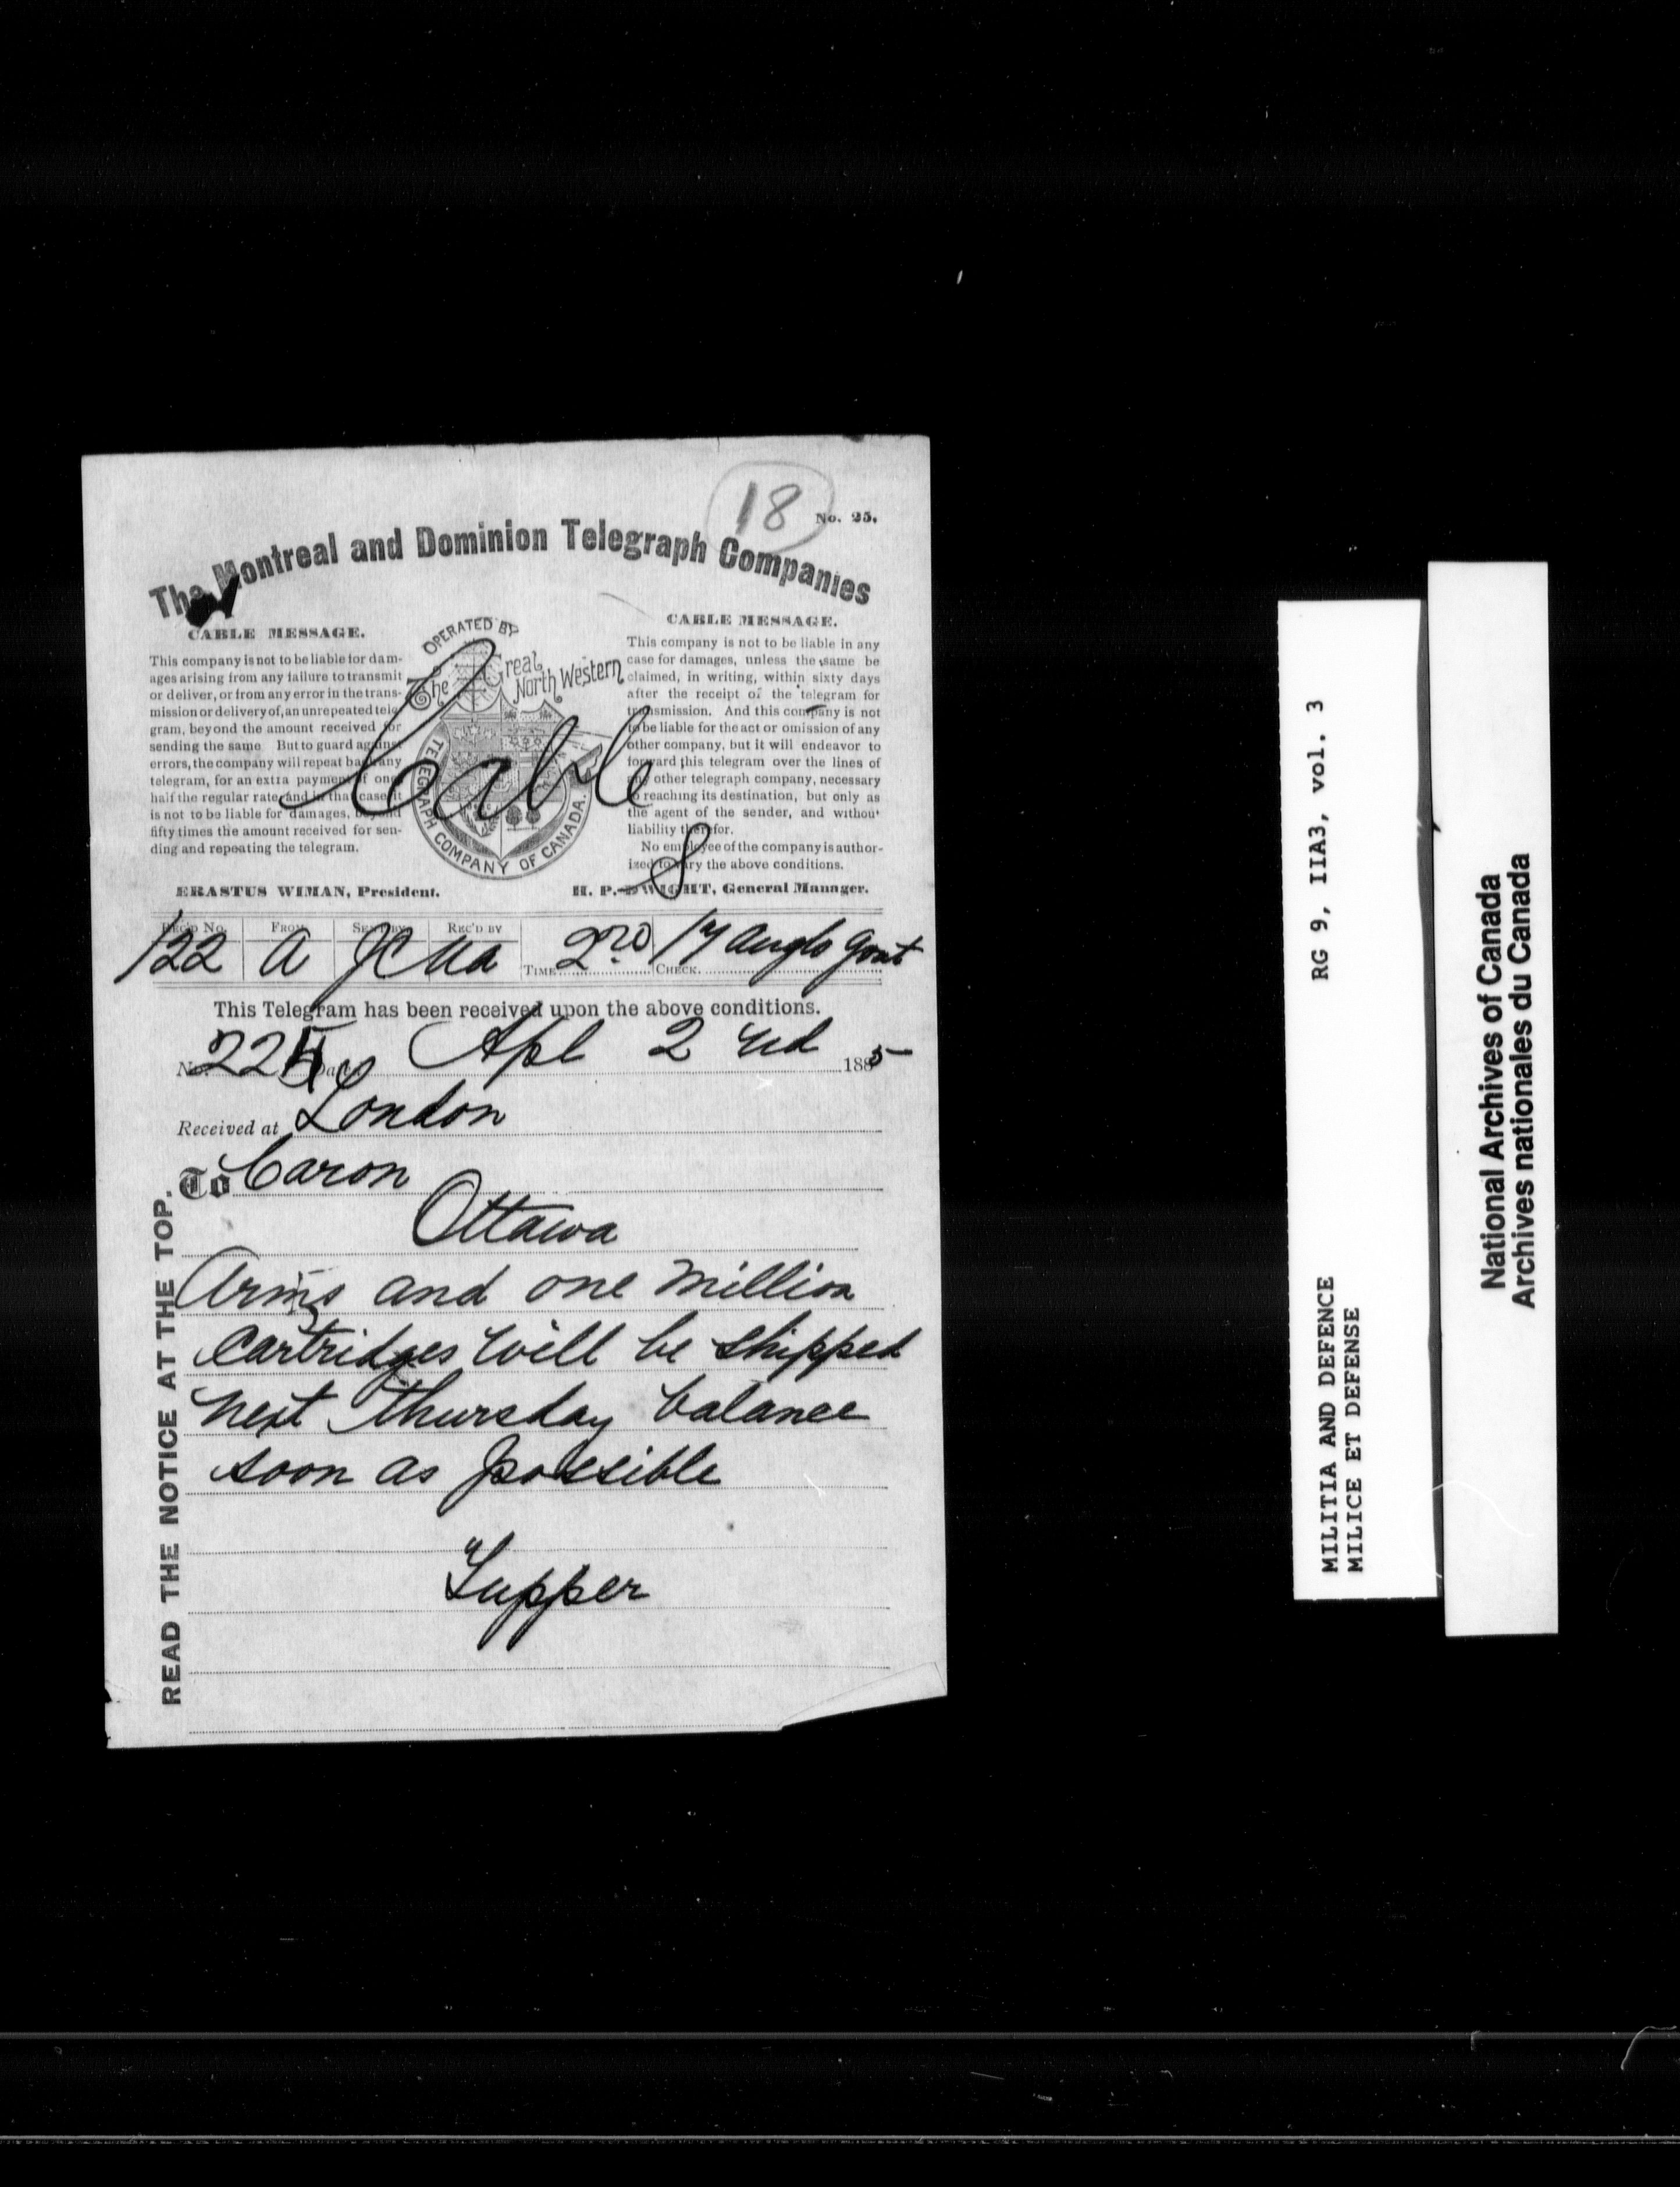 18
No. 25.
The Montreal and Dominion Telegraph Companies
CABLE MESSAGE.
This company is not to be liable for dam-
ages arising from any failure to transmit
or deliver, or from any error in the trans-
mission or delivery of, an unrepeated tele
gram, beyond the amount received for
sending the same But to guard against
errors, the company will repeat back any
telegram, for an extra payment of one
half the regular rate, and in that case it
is not to be liable for damages, beyond
fifty times the amount received for sen-
ding and repeating the telegram.
ERASTUS WIMAN, President.
OPERATED BY
The Great
North Western
TELEGRAPH COMPANY OF CANADA.
Cable
CABLE MESSAGE.
This company is not to be liable in any
case for damages, unless the same be
claimed, in writing, within sixty days
after the receipt of the telegram for
transmission. And this company is not
to be liable for the act or omission of any
other company, but it will endeavor to
forward this telegram over the lines of
any other telegraph company, necessary
to reaching its destination, but only as
the agent of the sender, and without
liability therefor.
No employee of the company is author-
ized to vary the above conditions.
8
H. P. DWIGHT, General Manager.
REC'D NO. FROM SENT BY REC'D BY TIME CHECK.
122 A JC Ma 17 Anglo Govt
This Telegram has been received upon the above conditions.
No. Date Apl 2 1885
Received at London
To Caron
Ottawa
Arms and one million
Cartridges will be shipped
next thursday balance
soon as possible
Tupper
READ THE NOTICE AT THE TOP.
MILITIA AND DEFENCE RG 9, IIA3, vol. 3
MILICE ET DEFENSE
National Archives of Canada
Archives nationales du Canada